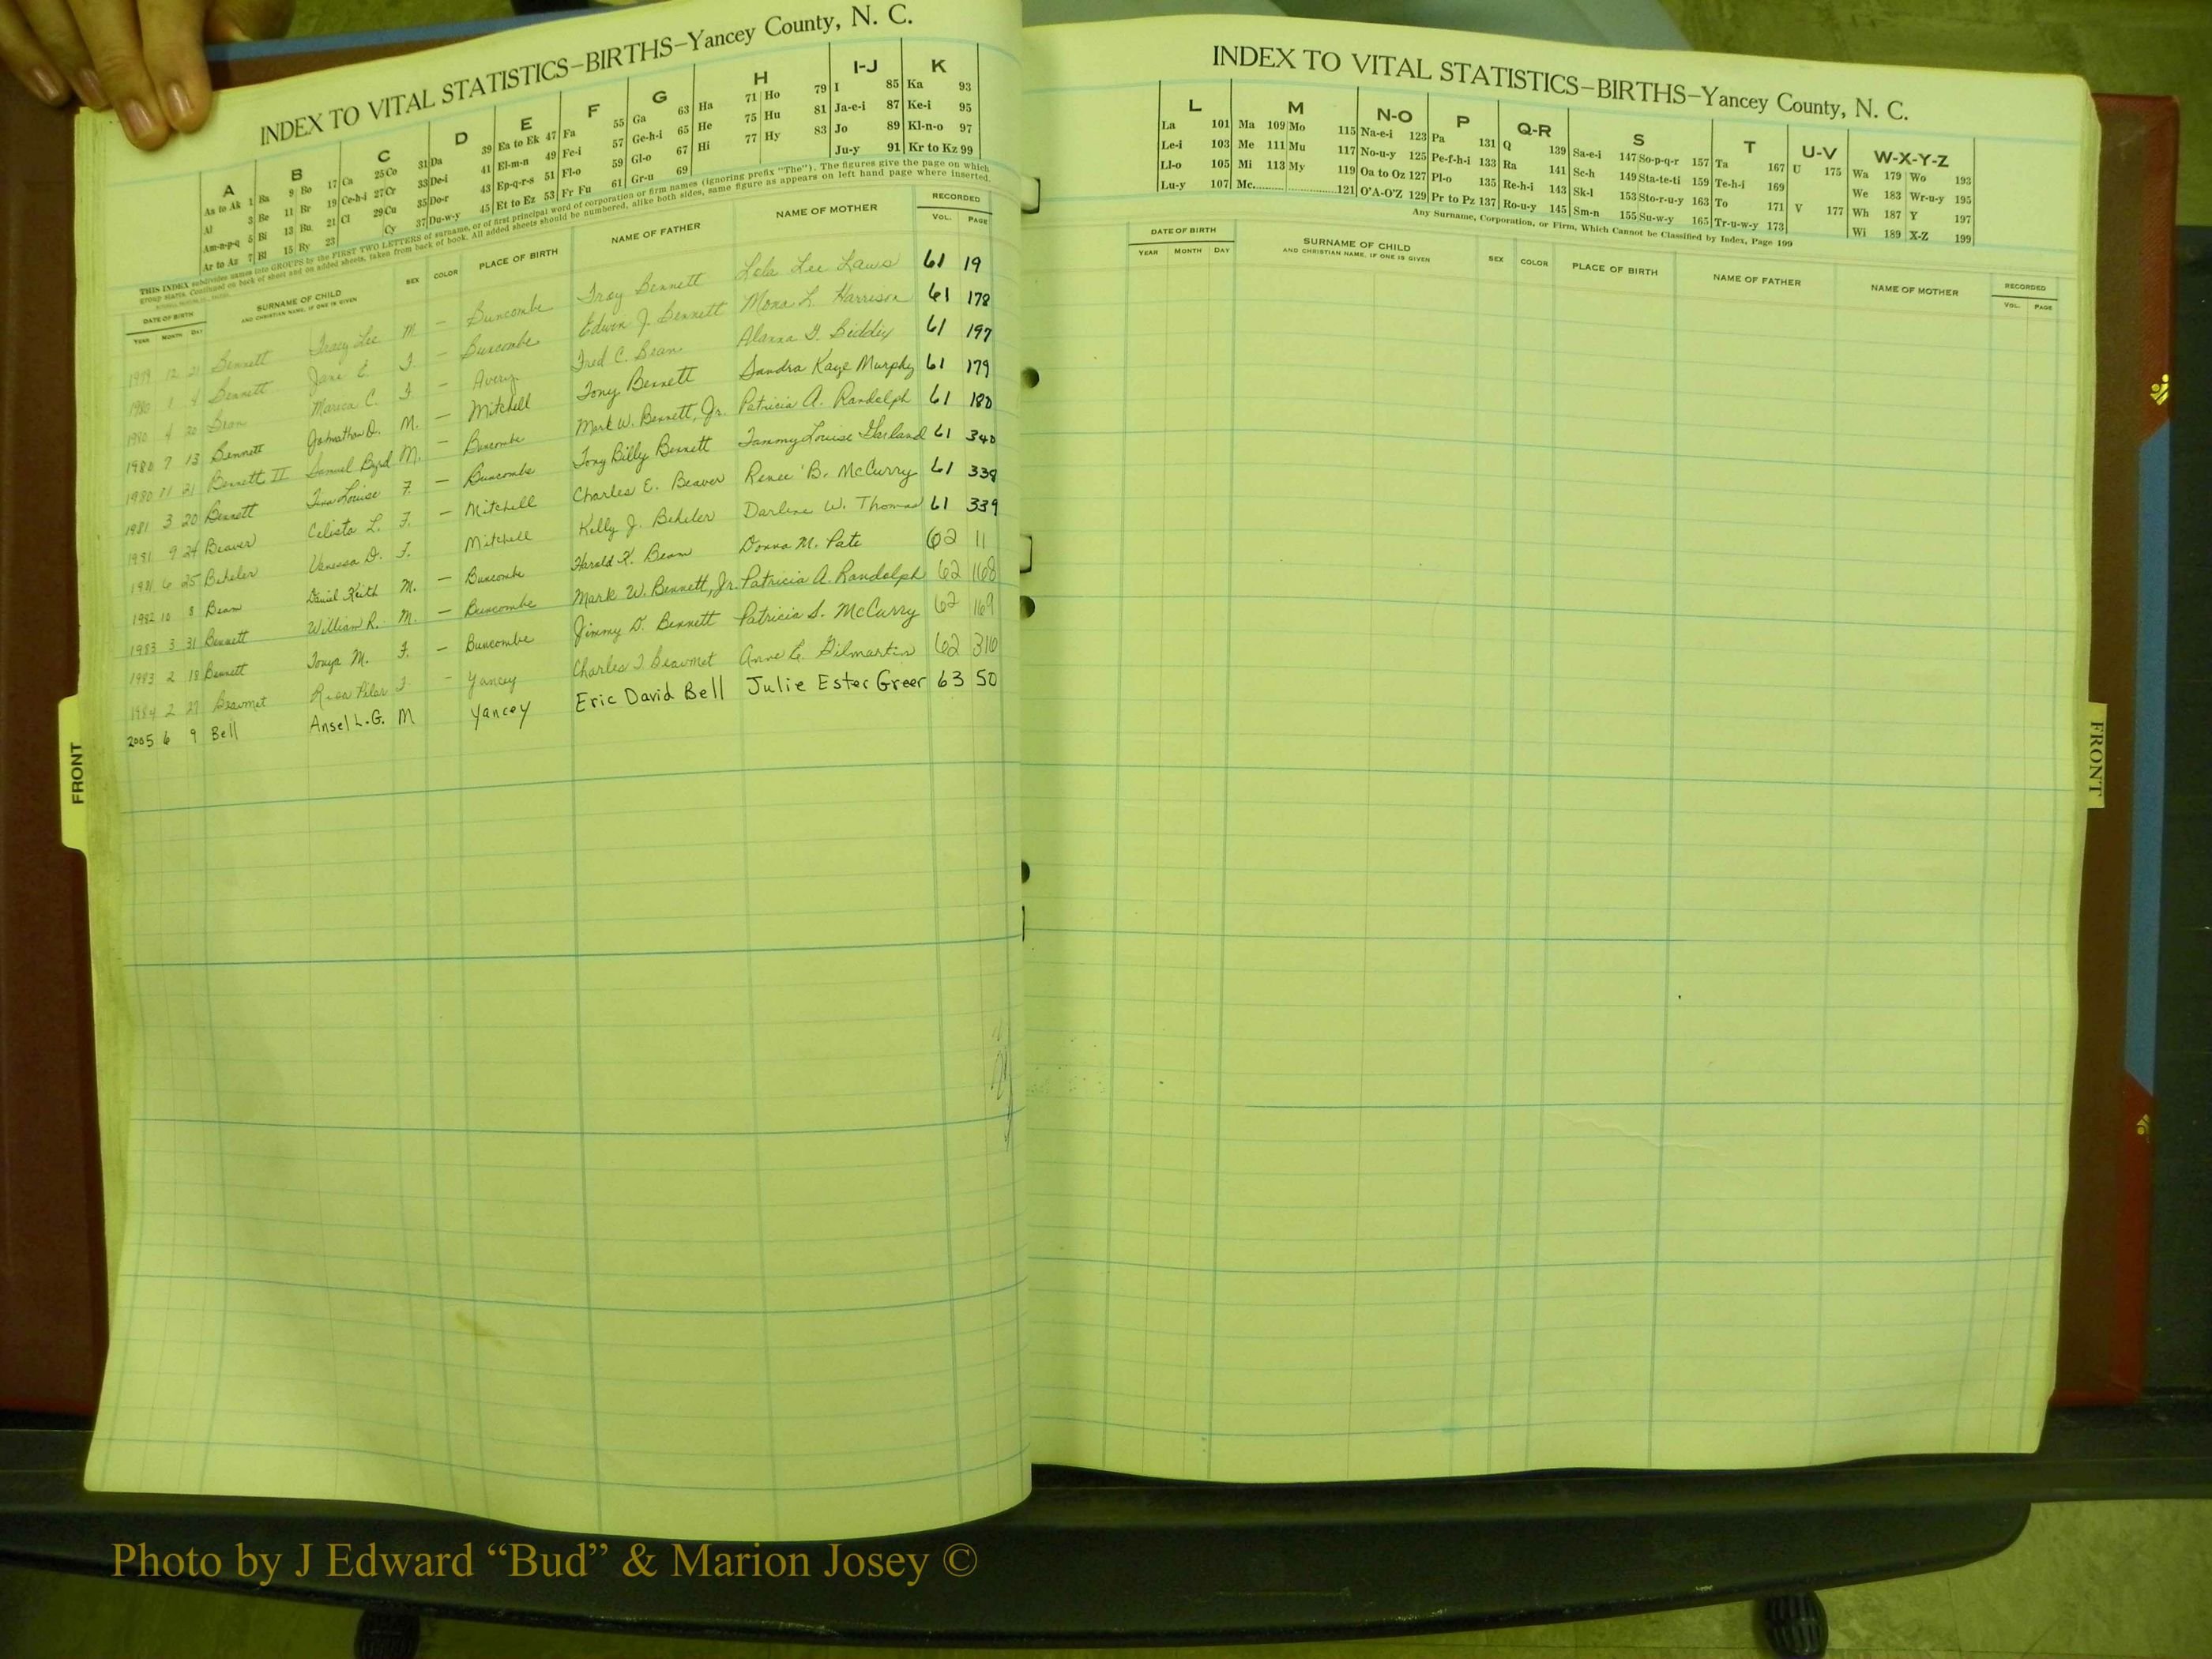 INDEX TO VITAL STATISTICS–BIRTHS–Yancey County, N. C.
A B C D E F G H I-J K
Aa to Ak 1 Ba 9 Bo 17 Ca 25 Co 31 Da 39 Ea to Ek 47 Fa 55 Ga 63 Ha 71 Ho 79 I 85 Ka 93
Al 3 Be 11 Br 19 Ce-h-i 27 Cr 33 De-i 41 El-m-n 49 Fe-i 57 Ge-h-i 65 He 75 Hu 81 Ja-e-i 87 Ke-i 95
Am-n-p-q 5 Bi 13 Bu 21 Cl 29 Cu 35 Do-r 43 Ep-q-r-s 51 Fl-o 59 Gl-o 67 Hi 77 Hy 83 Jo 89 Kl-n-o 97
Ar to Az 7 Bl 15 By 23 Cy 37 Du-w-y 45 Et to Ez 53 Fr Fu 61 Gr-u 69 Ju-y 91 Kr to Kz 99
THIS INDEX subdivides names into GROUPS by the FIRST TWO LETTERS of surname, or of first principal word of corporation or firm names (ignoring prefix "The"). The figures give the page on which
group starts. Continued on back of sheet and on added sheets, taken from back of book. All added sheets should be numbered, alike both sides, same figure as appears on left hand page where inserted.
DATE OF BIRTH SURNAME OF CHILD SEX COLOR PLACE OF BIRTH NAME OF FATHER NAME OF MOTHER RECORDED
YEAR MONTH DAY AND CHRISTIAN NAME, IF ONE IS GIVEN VOL. PAGE
1979 12 21 Bennett Tracy Lee M – Buncombe Troy Bennett Lola Lee Laws 61 19
1980 1 4 Bennett Jane E. F. – Buncombe Edwin J. Bennett Mona L. Harrison 61 178
1980 4 20 Bean C. F – Avery Fred C. Bean Alanna G. Biddix 61 197
1980 7 13 Bennett Johnathan D. M. – Mitchell Tony Bennett Sandra Kaye Murphy 61 179
1980 11 21 Bennett II Samuel Byrd M. – Buncombe Mark W. Bennett, Jr. Patricia A. Randolph 61 180
1981 3 20 Bennett Louise F. – Buncombe Tony Billy Bennett Tammy Louise Garland 61 340
1981 9 24 Beaver Celista L. F. – Mitchell Charles E. Beaver Renee B. McCurry 61 338
1981 6 25 Beheler Vanessa D. F. Mitchell Kelly J. Beheler Darlene W. Thomas 61 339
1982 10 8 Beam Daniel Keith M. – Buncombe Harold K. Beam Donna M. Pate 62 11
1983 3 31 Bennett William R. M. – Buncombe Mark W. Bennett, Jr. Patricia A. Randolph 62 168
1983 2 18 Bennett Tonya M. F. – Buncombe Jimmy D. Bennett Patricia S. McCurry 62 169
1984 2 27 Pilar F – Yancey Charles Anne C. Gilmartin 62 310
2005 6 9 Bell Ansel L.G. M Yancey Eric David Bell Julie Ester Greer 63 50
FRONT
INDEX TO VITAL STATISTICS–BIRTHS–Yancey County, N. C.
L M N-O P Q-R S T U-V W-X-Y-Z
La 101 Ma 109 Mo 115 Na-e-i 123 Pa 131 Q 139 Sa-e-i 147 So-p-q-r 157 Ta 167 U 175 Wa 179 Wo 193
Le-i 103 Me 111 Mu 117 No-u-y 125 Pe-f-h-i 133 Ra 141 Sc-h 149 Sta-te-ti 159 Te-h-i 169 We 183 Wr-u-y 195
Ll-o 105 Mi 113 My 119 Oa to Oz 127 Pl-o 135 Re-h-i 143 Sk-l 153 Sto-r-u-y 163 To 171 V 177 Wh 187 Y 197
Lu-y 107 Mc 121 O'A-O'Z 129 Pr to Pz 137 Ro-u-y 145 Sm-n 155 Su-w-y 165 Tr-u-w-y 173 Wi 189 X-Z 199
Any Surname, Corporation, or Firm, Which Cannot be Classified by Index, Page 199
DATE OF BIRTH SURNAME OF CHILD SEX COLOR PLACE OF BIRTH NAME OF FATHER NAME OF MOTHER RECORDED
YEAR MONTH DAY AND CHRISTIAN NAME, IF ONE IS GIVEN VOL. PAGE
FRONT
Photo by J Edward “Bud” & Marion Josey ©